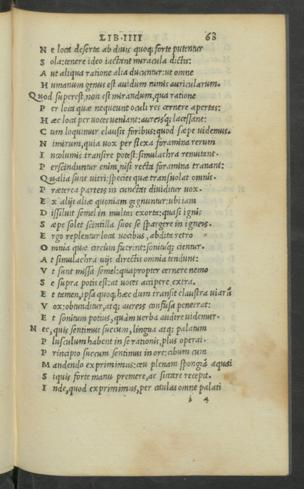 LIB·IIII 68
N e loca deserta ab diuis quoq; forte putentur
S ola: tenere ideo iactant miracula dictis:
A ut aliqua ratione alia ducuntur: ut omne
H umanum genus est auidum nimis auricularum.
Quod superest, non est mirandum, qua ratione
P er loca quae nequeunt oculi res cernere apertas;
H aec loca per uoces ueniant: aureisq; lacessant:
C um loquimur clausis foribus: quod saepe uidemus.
N imirum, quia uox per flexa foramina rerum
I ncolumis transire potest: simulachra renutant.
P erscinduntur enim, nisi recta foramina tranant;
Qualia sunt uitri: specite quae transuolat omnis.
P raeterea parteis in cunctas diuiditur uox.
E x' alijs aliae quoniam gignuntur: ubi iam
D issiluit semel in multas exorta: quasi ignis
S aepe solet scintilla suos se spargere in igneis.
E rgo replentur loca uocibus, abdita retro
O mnia quae circum fuerint: sonituq; cientur.
A t simulachra uijs directis omnia tendunt:
V t sunt missa semel: quapropter cernere nemo
S e supra potis est: at uoces accipere extra.
E t tamen, ipsa quoq; haec dum transit claustra uiarũ
V ox: obtunditur, atq; aureis confusa penetrat:
E t sonitum potius, quàm uerba audire uidemur.
N ec, quis sentimus succum, lingua atq; palatum
P lusculum habent in se rationis, plus operai.
P rincipio succum sentimus in ore: cibum cum
M andendo exprimimus: ceu plenam spongiã aquai
S i quis forte manu premere, ac siccare recepit.
I nde, quod exprimimus, per caulas omne palati
i 4